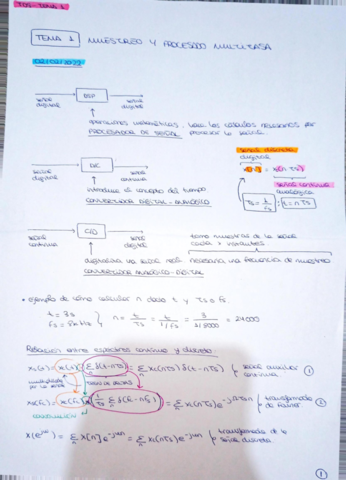 TDS - TEMA 1
TEMA 1 MUESTREO Y PROCESADO MULTITASA
señal digital → DSP → señal digital
operaciones matemáticas, hace los cálculos necesarios para
PROCESADOR DE SEÑAL procesar la señal
señal digital → D/C → señal continua
introduce el concepto del tiempo
CONVERTIDOR DIGITAL - ANALÓGICO
señal discreta
digital
x[n] = x(nTs)
señal continua
analógica
Ts = t/n ; t = nTs
señal continua → C/D → señal digital
toma muestras de la señal
cada x instantes
digitaliza una señal real necesaria una frecuencia de muestreo
CONVERTIDOR ANALÓGICO - DIGITAL
• ejemplo de cómo calcular n dado t y Ts o fs
t = 3s
fs = 8 kHz } n = t/Ts = t/(1/fs) = 3/(1/8000) = 24000
Relación entre espectros continuo y discreto
xs(t) = xc(t) · Σ δ(t-nTs) = Σ xc(nTs) δ(t-nTs) } señal auxiliar continua ①
multiplicado
TREN DE DELTAS
= Σ xc(nTs) e^-j2πfnTs } transformada de Fourier ②
convolución
X(e^jω) = Σ x[n] e^-jωn = Σ xc(nTs) e^-jωn } transformada de la señal discreta
①